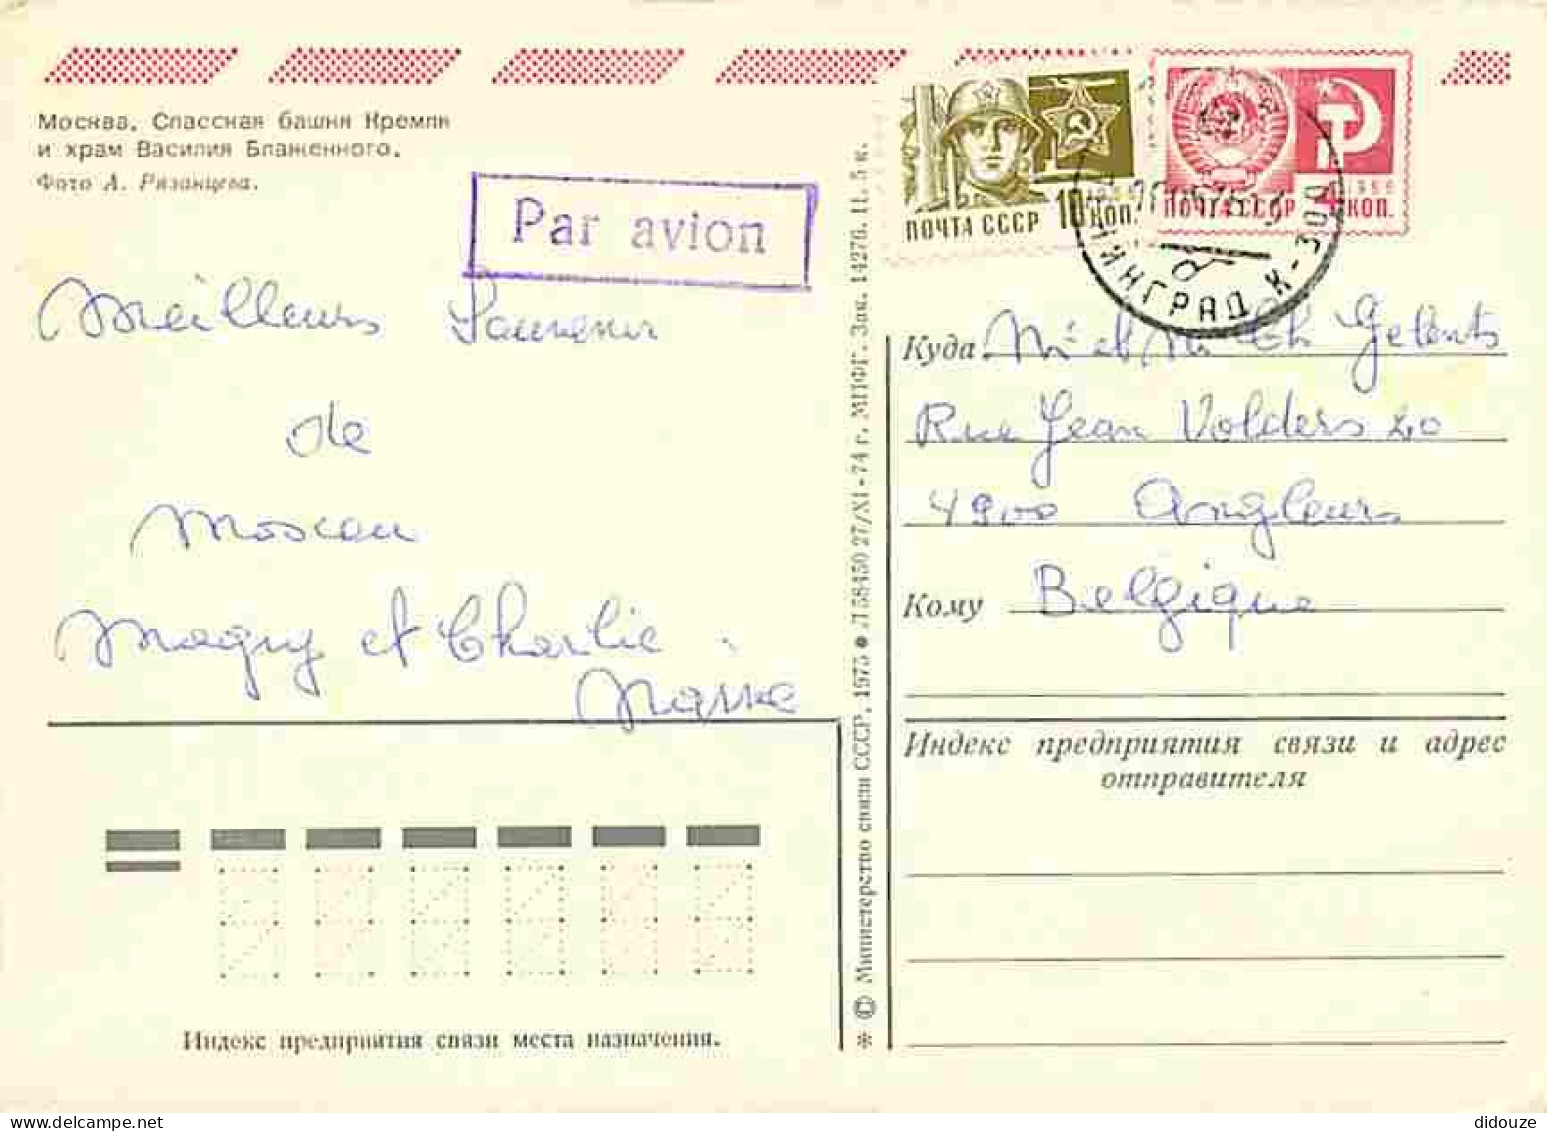 Москва. Спасская башня Кремля
и храм Василия Блаженного.
Фото А. Рязанцева.
Par avion
ПОЧТА СССР 10 КОП.
ПОЧТА СССР КОП.
1966
НИНГРАД К-300
Meilleurs Souvenir
de
Moscou
Maggy et Charlie.
Куда Mr et Mme Ch Gelents
Rue Jean Volders 20
4900 Angleurs
Кому Belgique
Индекс предприятия связи и адрес
отправителя
Индекс предприятия связи места назначения.
※ © Министерство связи СССР, 1975 ● Л 58450 27/XI-74 г. МПФГ. Зак. 14276. Ц. 5 к.
didouze